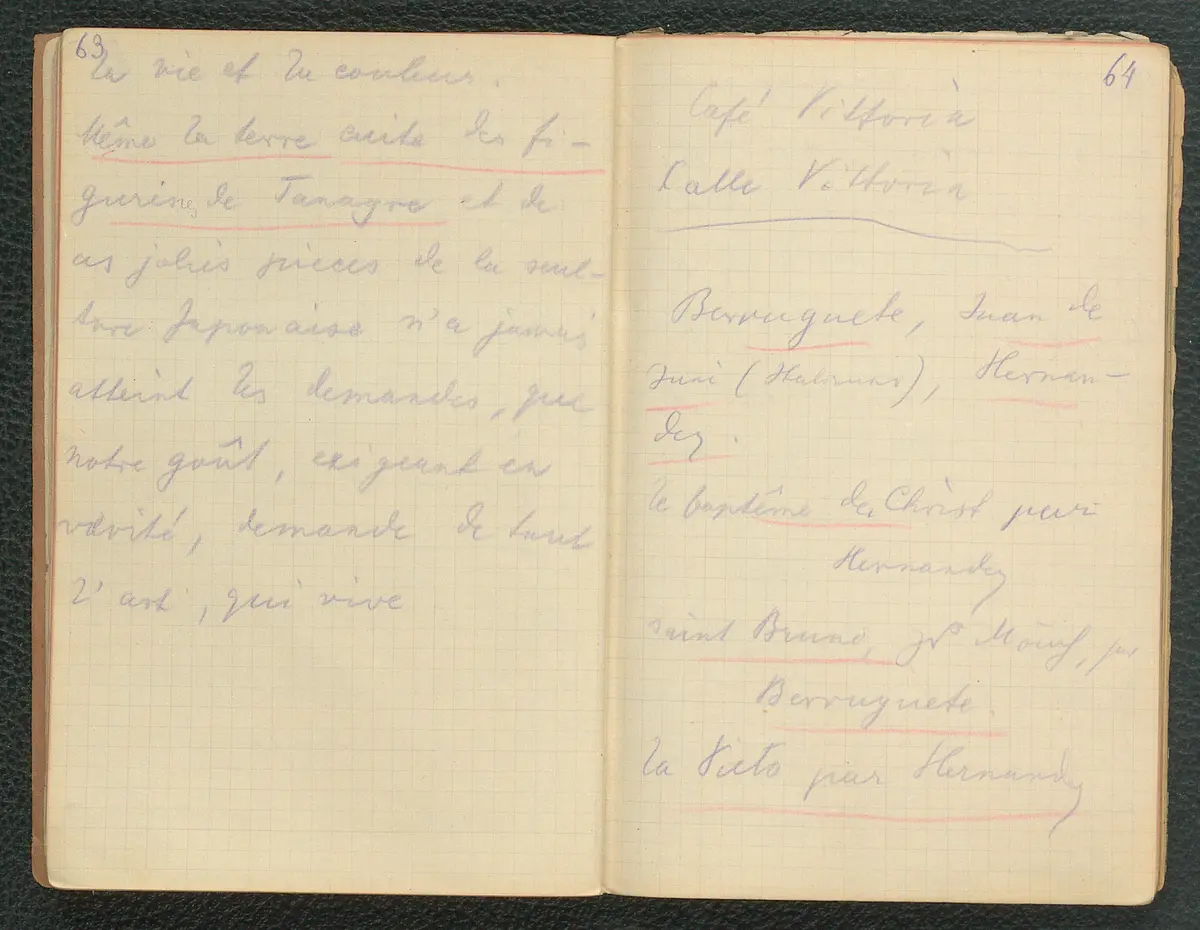 63
la vie et la couleur.
Même la terre cuite des fi-
gurines de Tanagre et de
ces jolies pièces de la scul-
ture Japonaise n'a jamais
atteint les demandes, que
notre goût, exigeant en
vérité, demande de tout
l'art, qui vive
64
Café Vittoria
Calle Vittoria
Berruguete, Juan de
Juni (Italiano), Hernan-
dez.
le baptême de Christ par
Hernandez
saint Bruno, par
Berruguete.
la Pieta par Hernandez